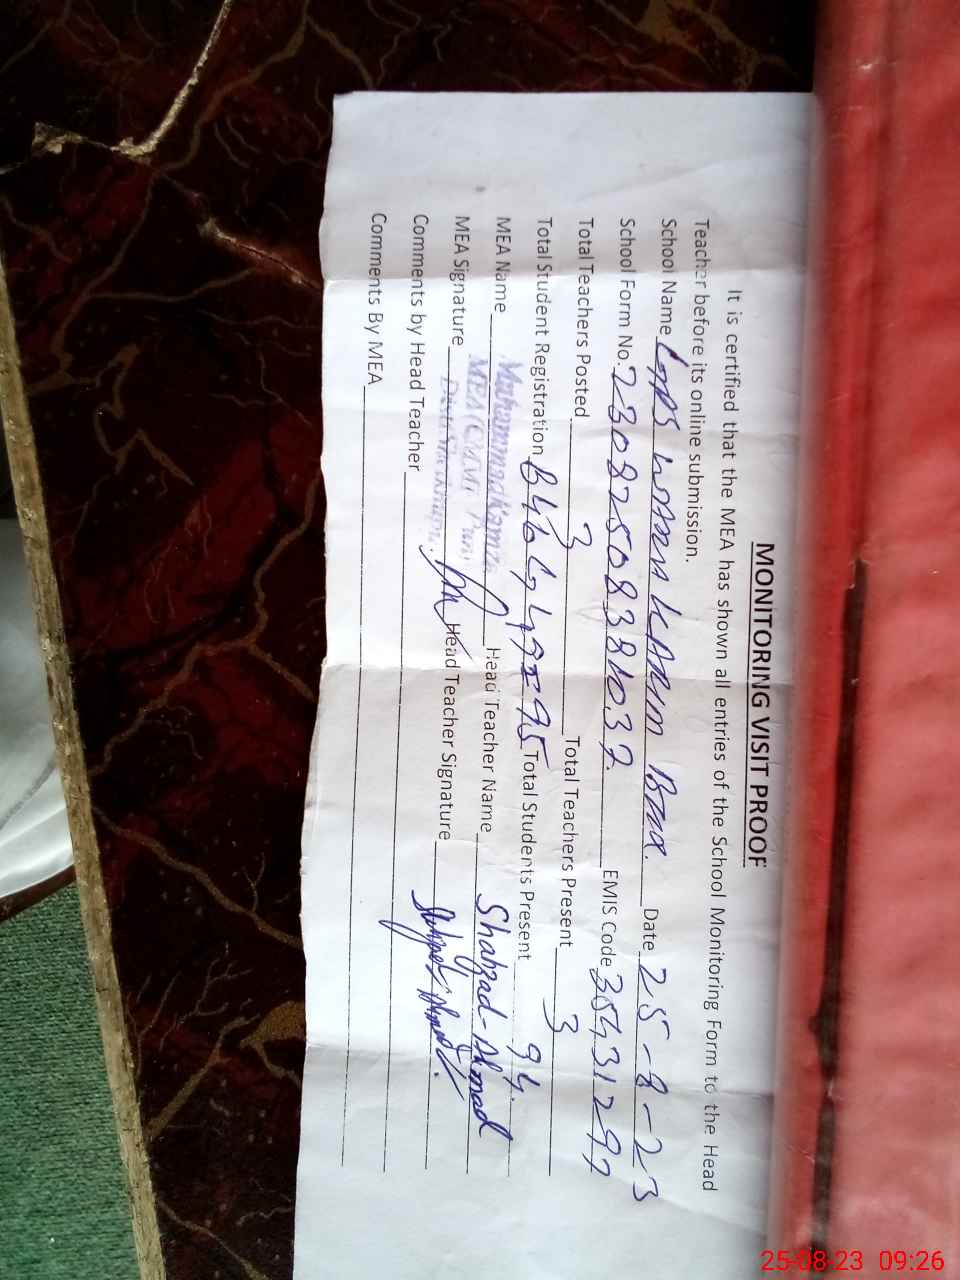 MONITORING VISIT PROOF
It is certified that the MEA has shown all entries of the School Monitoring Form to the Head
Teacher before its online submission.
School Name GPS KARIM Date 25-8-23
School Form No. EMIS Code 35431297
Total Teachers Posted 3 Total Teachers Present 3
Total Student Registration = 95 Total Students Present 94.
MEA Name Muhammad Head Teacher Name Shahzad-Ahmad
MEA Signature Head Teacher Signature
Comments by Head Teacher
Comments By MEA
25-08-23 09:26